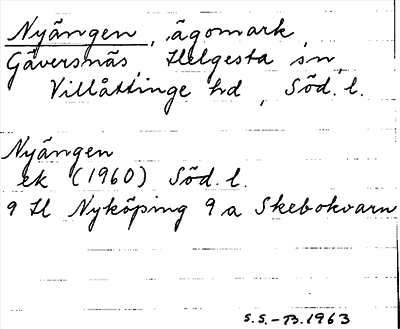 Nyängen, ägomark,
Gäversnäs, Helgesta sn,
Villåttinge hd, Söd. l.
Nyängen
ek (1960) Söd. l.
9 H Nyköping 9 a Skebokvarn
S.S.-B.1963